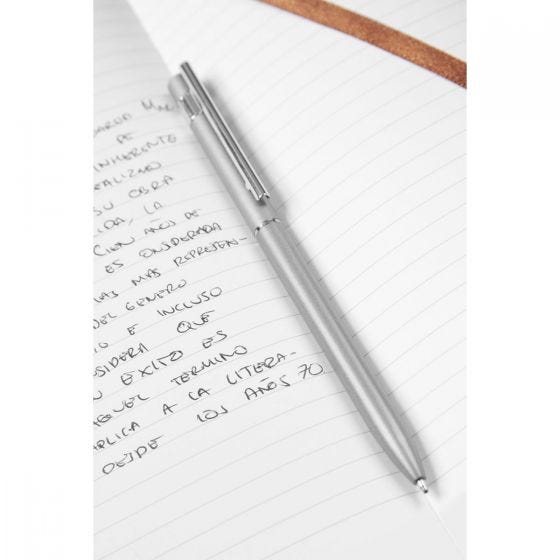 MAR
DE
INHERENTE
EALIZAD
SU OBRA
IDA, LA
CIEN AÑOS DE
ES ONSIDERADA
LAS MAS REPRESEN-
DEL GENERO
IO E INCLUSO
SIDERA QUE
N EXITO ES
AQUEL TERMINO
APLICA A LA LITERA-
DESDE LOS AÑOS 70